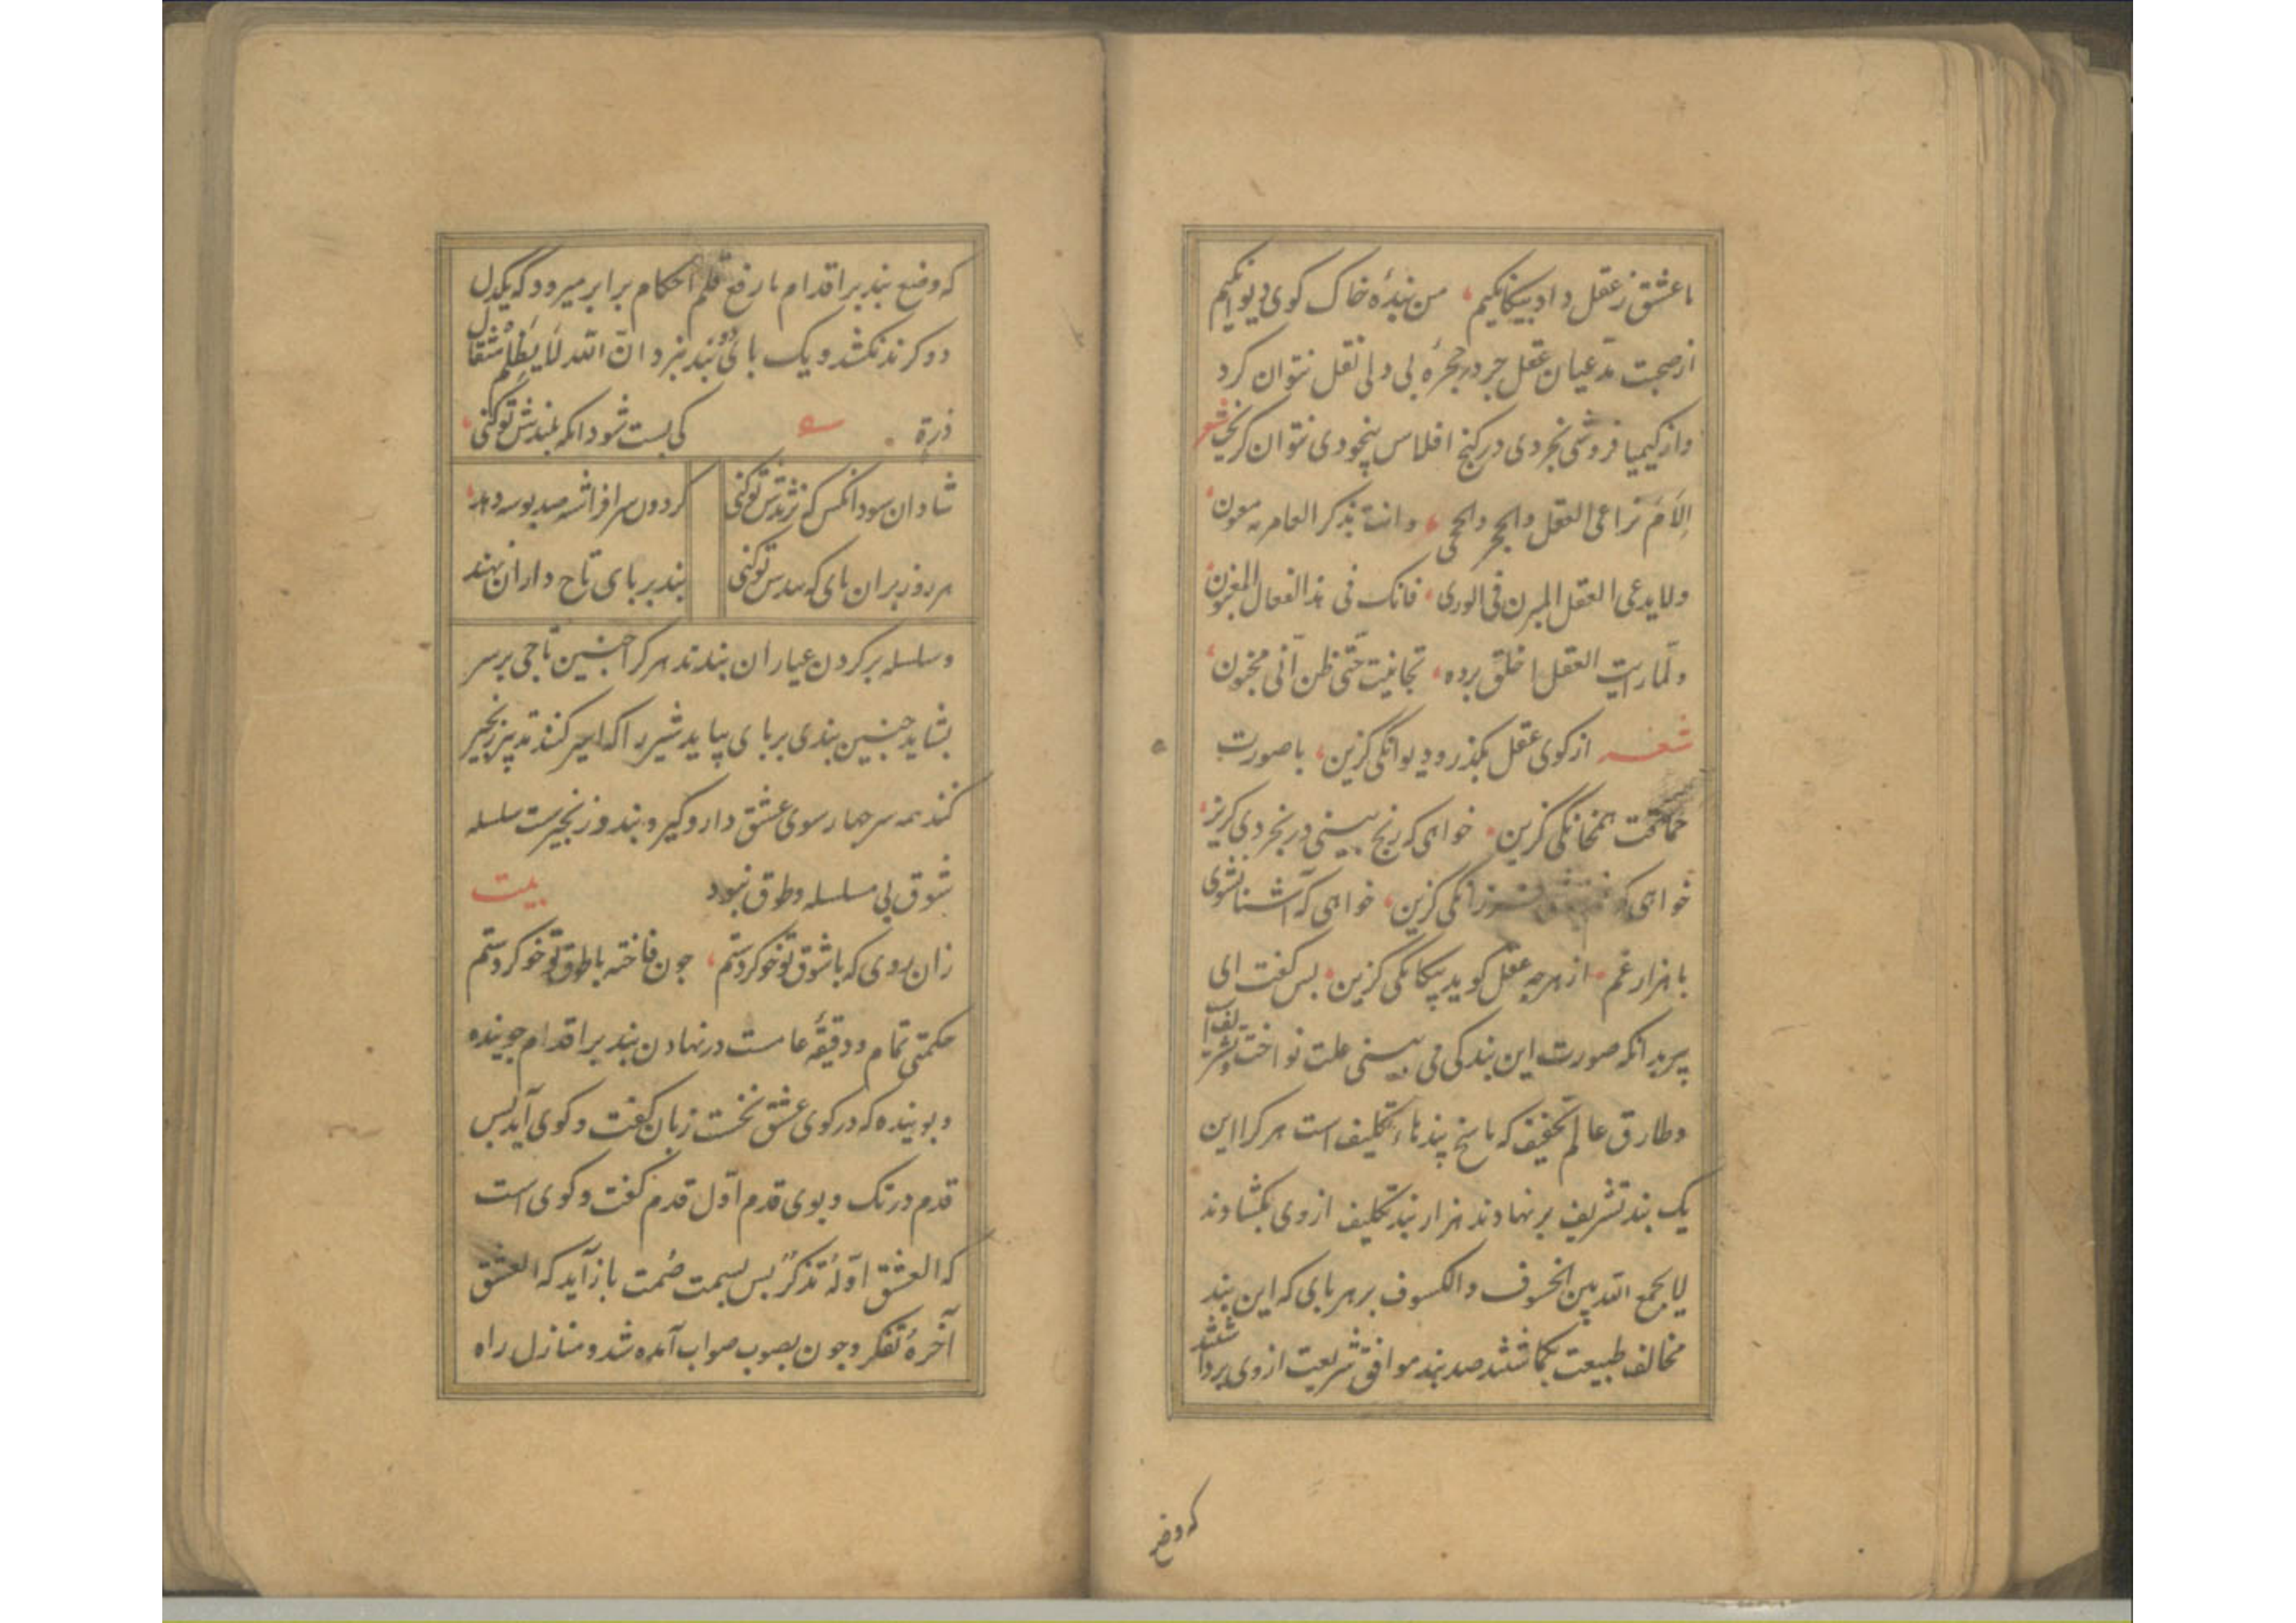 با عشق ز عقل داد بیکانکیم ، من بندهٔ خاک کوی دیوانکیم
از صحبت مدعیان عقل جز در حجرهٔ بی دلی نقل نتوان کرد
واز کیمیا فروشی نجردی در کنج افلاس بیخودی نتوان کریخت شعر
الام تراعی العقل والحجر والحجی ، وانت بذکر العامریه معون
ولا یدعی العقل المبرن فی الوری ، فانک فی هذا الفعال المغبون
ولما رایت العقل اخلق برده ، تجانیت حتی ظن انی مجنون
شعر از کوی عقل بکذر و دیوانکی کزین ، با صورت
حماقت همخانکی کزین ، خواهی که رنج بینی در بخردی کریز
خواهی که فرزانکی کزین ، خواهی که آشنا نشوی
با هزار غم ، از هرچه عقل کوید بیکانکی کزین ، بس کفت ای
پیر بدانکه صورت این بندکی می بینی علت نواخت و تشریف است
وطارق عالم تخفیف که ناسخ بندهاء تکلیف است هر کرا این
یک بند تشریف بر نهادند هزار بند تکلیف از وی بکشادند
لا یجمع الله بین الخسوف والکسوف بر هر پای که این بند
مخالف طبیعت بکماشتند صد بند موافق شریعت از وی برداشتند
که وضع
که وضع بند بر اقدام با رفع قلم احکام برابر میرود که یکدل
دو کرند نکشد و یک پای دو بند نبرد ان الله لا یظلم مثقال
ذرة کی بست شود انکه بلندش تو کنی ،
شادان سود انکس که نژندش تو کنی کردون سرافراشته صد بوسه دهد ،
هر روز بران پای که بندس تو کنی بند بر پای تاج داران نهند
وسلسله بر کردن عیاران بندند هر کرا چنین تاجی بر سر
بشاید چنین بندی بر پای بباید شیر را که اسیر کنند تدبیر زنجیر
کنند همه سر چهار سوی عشق دار و کیر و بند و زنجیرست سلسله
شوق بی سلسله و طوق نبود بیت
زان روی که با شوق تو خو کردستم ، چون فاخته با طوق تو خو کردستم
حکمتی تمام و دقیقهٔ عامست در نهادن بند بر اقدام جوینده
و بوینده که در کوی عشق نخست زبان کفت و کوی آید بس
قدم در تک و بوی قدم اول قدم کفت و کوی است
که العشق اوله تذکر بس بسمت صمت باز آید که العشق
آخره تفکر و چون بصوب صواب آمده شد و منازل راه